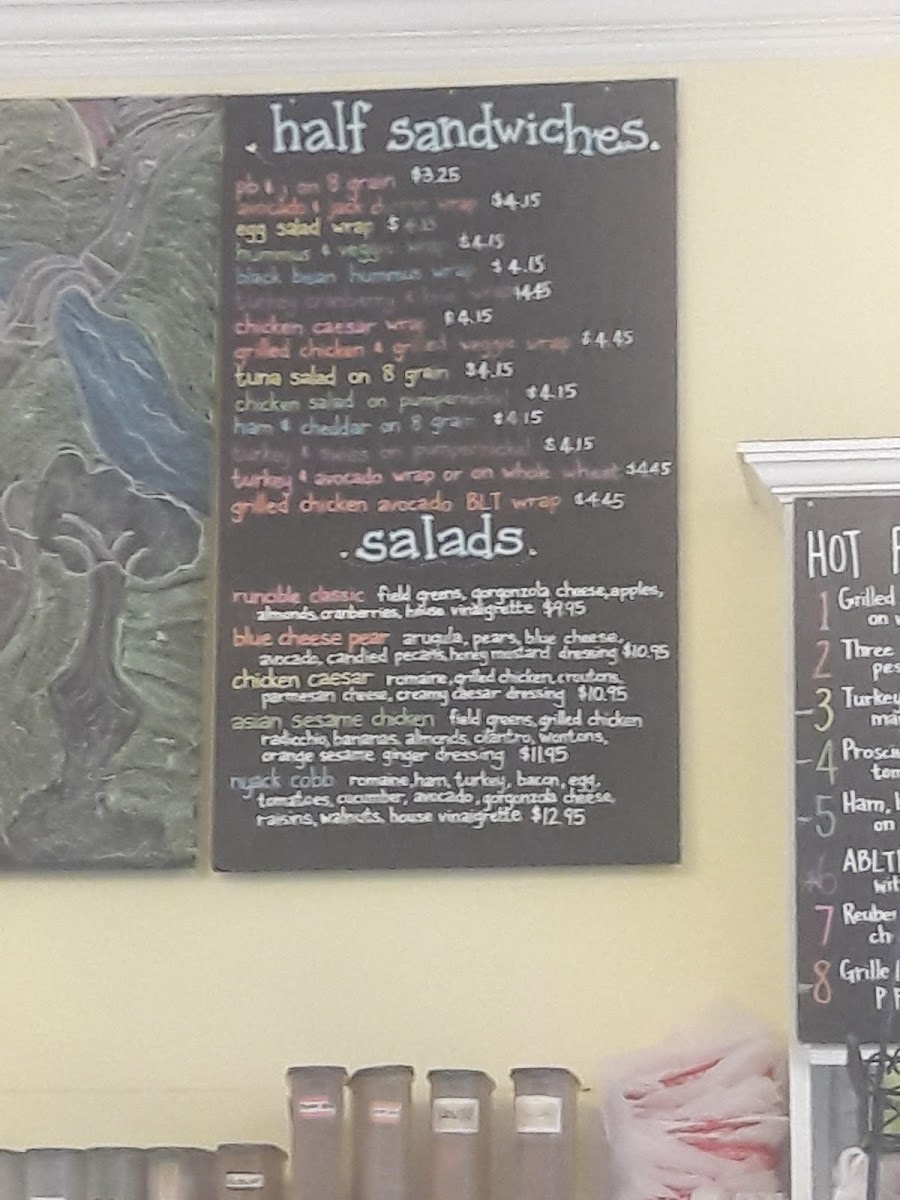 half sandwiches.
pb & j on 8 grain $3.25
avocado & jack wrap $4.15
egg salad wrap $4.15
hummus & veggie wrap $4.15
black bean hummus wrap $4.15
turkey cranberry &
chicken caesar wrap $4.15
grilled chicken & grilled veggie wrap $4.45
tuna salad on 8 grain $4.15
chicken salad on pumpernickel $4.15
ham & cheddar on 8 grain $4.15
turkey & swiss on pumpernickel $4.15
turkey & avocado wrap or on whole wheat $4.45
grilled chicken avocado BLT wrap $4.45
.salads.
runcible classic field greens, gorgonzola cheese, apples,
almonds, cranberries, house vinaigrette $9.95
blue cheese pear arugula, pears, blue cheese,
avocado, candied pecans, honey mustard dressing $10.95
chicken caesar romaine, grilled chicken, croutons,
parmesan cheese, creamy caesar dressing $10.95
asian sesame chicken field greens, grilled chicken
radicchio, bananas, almonds, cilantro, wontons,
orange sesame ginger dressing $11.95
nyack cobb romaine, ham, turkey, bacon, egg,
tomatoes, cucumber, avocado, gorgonzola cheese,
raisins, walnuts, house vinaigrette $12.95
HOT
1 Grilled
on
2 Three
pes
3 Turkey
ma
4 Prosciu
tom
5 Ham,
on
6 ABLT
wit
7 Reube
ch
8 Grille
P